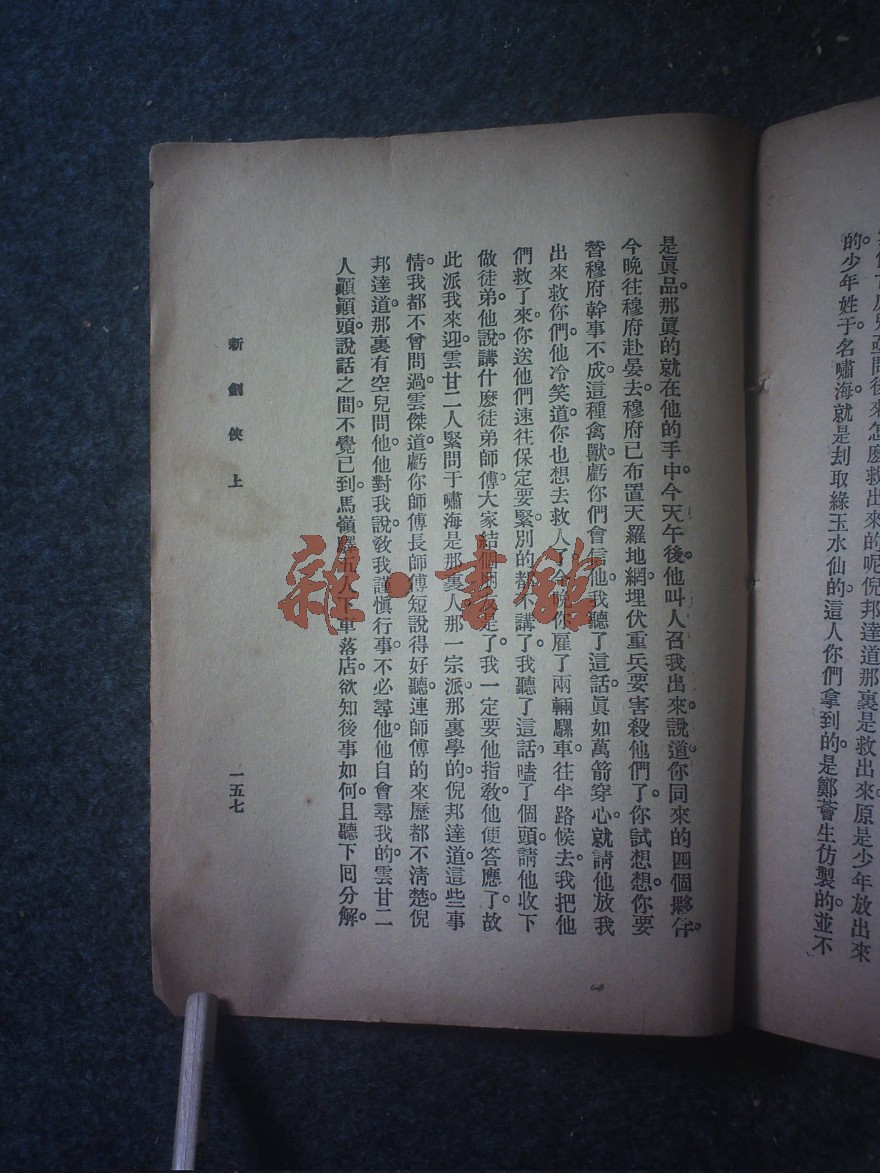 的。少年姓于名嘯海。就是刦取綠玉水仙的。這人你們拿到的。是鄭薈生仿製的。並不
是眞品。那眞的就在他的手中。今天午後。他叫人召我出來。說道。你同來的四個夥伴。
今晚往穆府赴晏去。穆府已布置天羅地網。埋伏重兵。要害殺他們了。你試想想。你要
替穆府幹事不成。這種禽獸虧你們會信他。我聽了這話。眞如萬箭穿心。就請他放我
出來救你們。他冷笑道。你也想去救人了。今晚你雇了兩輛騾車。往半路候去。我把他
們救了來。你送他們速往保定要緊。別的都不講了。我聽了這話。嗑了個頭。請他收下
做徒弟。他說講什麽徒弟師傅。大家結個是了。我一定要他指敎。他便答應了。故
此派我來迎。雲廿二人緊問于嘯海是那裏人。那一宗派。那裏學的。倪邦達道。這些事
情。我都不曾問過。雲傑道。虧你師傅長師傅短。說得好聽。連師傅的來歷都不清楚。倪
邦達道。那裏有空兒問他。他對我說。敎我謹愼行事。不必尋他。他自會尋我的。雲廿二
人顚顚頭。說話之間。不覺已到馬嶺驛。五人下車落店。欲知後事如何。且聽下回分解。
新劍俠上
一五七
雜·書館